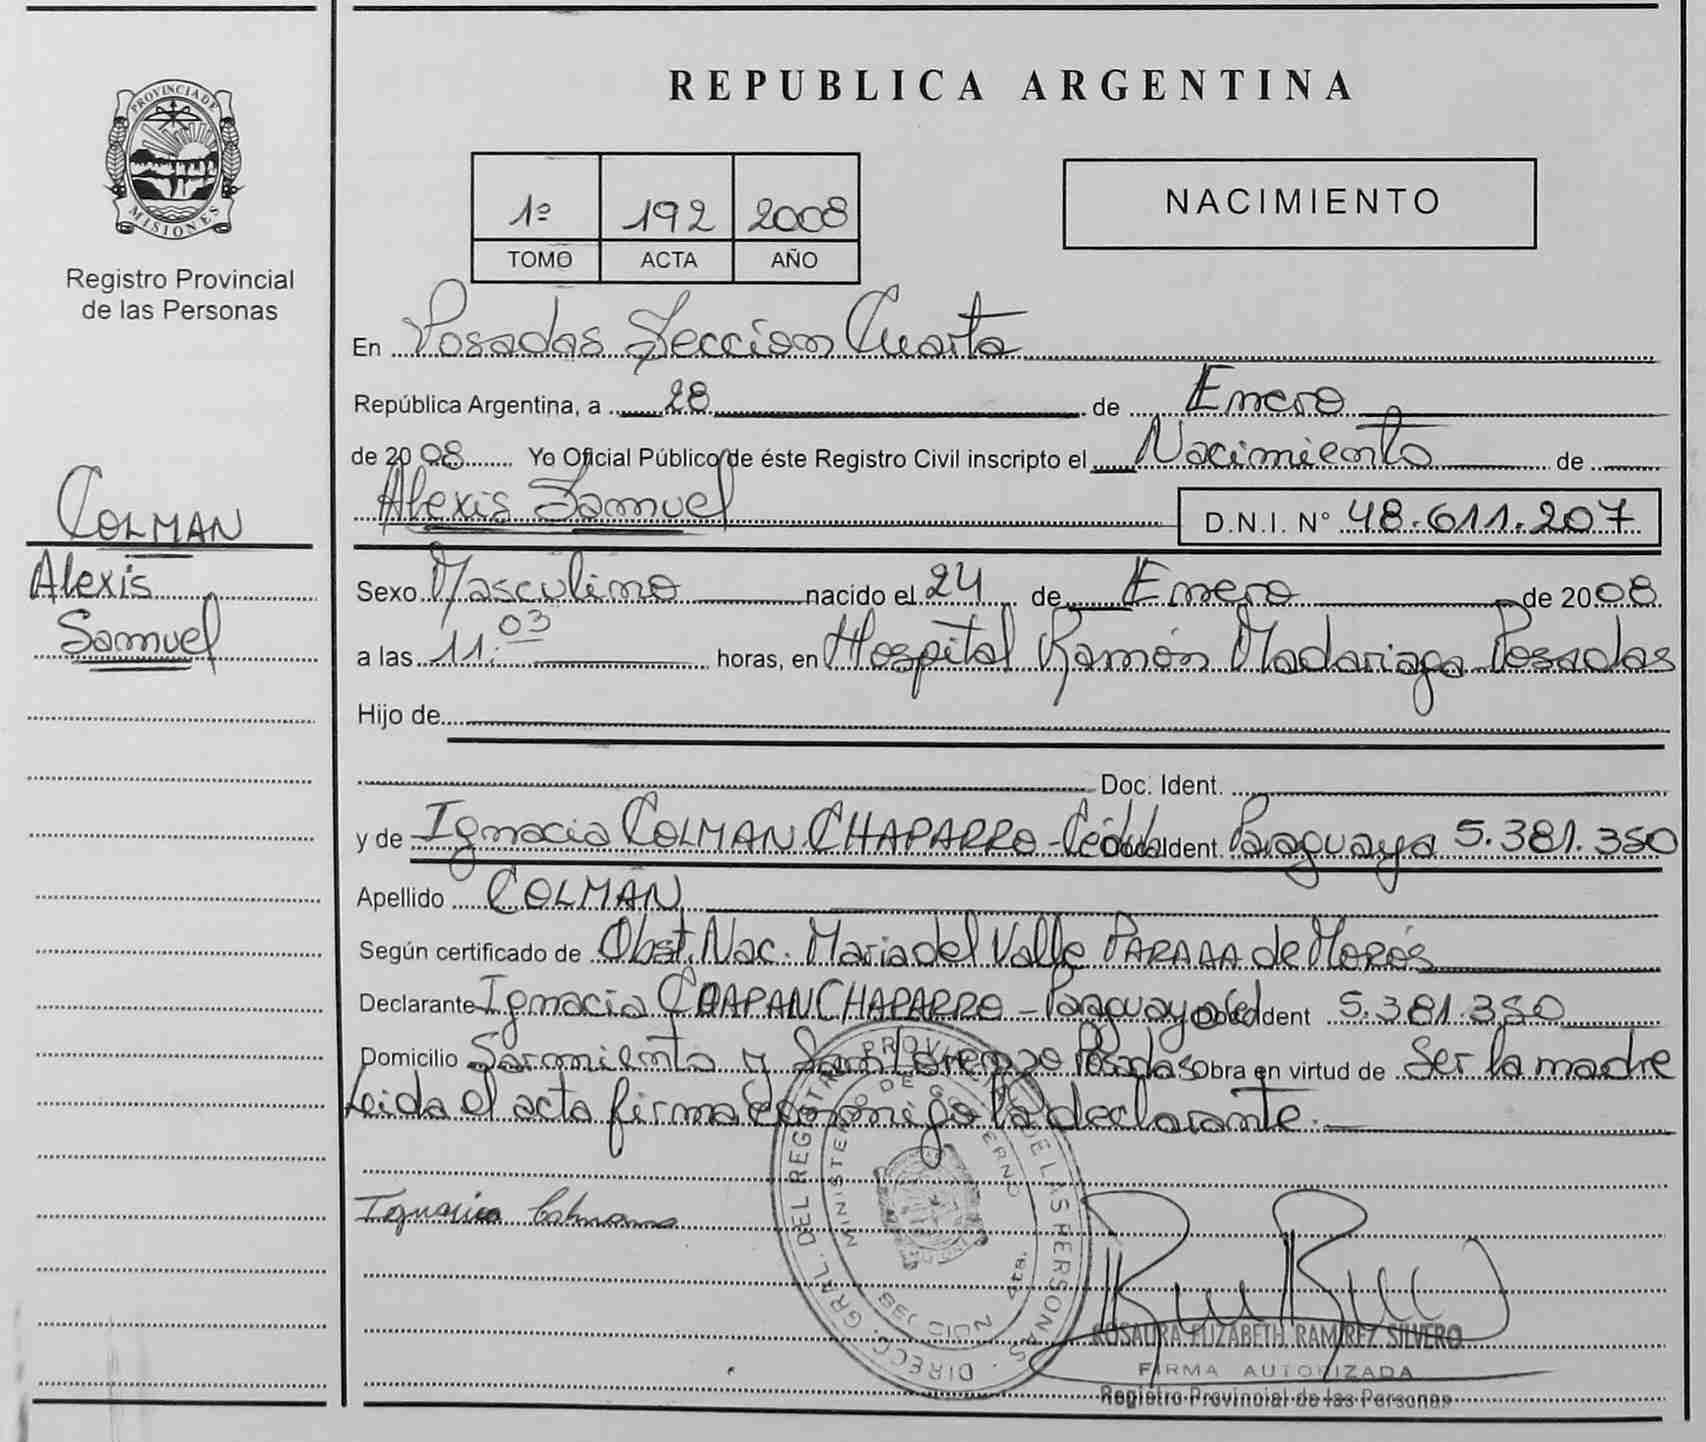 PROVINCIA DE
MISIONES
Registro Provincial
de las Personas
COLMAN
Alexis
Samuel
REPUBLICA ARGENTINA
1º 192 2008
TOMO ACTA AÑO
NACIMIENTO
En Posadas Seccion Cuarta
República Argentina, a 28 de Enero
de 2008 Yo Oficial Público de éste Registro Civil inscripto el Nacimiento de
Alexis Samuel D.N.I. Nº 48.611.207
Sexo Masculino nacido el 24 de Enero de 2008
a las 11:03 horas, en Hospital Ramón Madariaga Posadas
Hijo de
Doc. Ident.
y de Ignacia COLMAN CHAPARRO - Cédula Ident Paraguaya 5.381.350
Apellido COLMAN
Según certificado de Obst. Nac. Maria del Valle de Morós
Declarante Ignacia CHAPARRO - Paraguaya Ident 5.381.350
Domicilio Sarmiento y San Lorenzo Posadas Obra en virtud de Ser la madre
Leida el acta firma conmigo la declarante.
Ignacia Colman
DIRECC. GRAL. DEL REGISTRO PROVINCIAL DE LAS PERSONAS
MINISTERIO DE GOBIERNO
ROSAURA ELIZABETH RAMIREZ SILVERO
FIRMA AUTORIZADA
Registro Provincial de las Personas